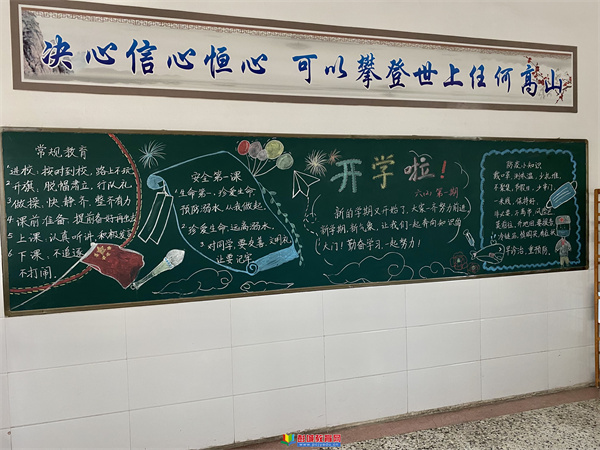 决心信心恒心 可以攀登世上任何高山
常规教育
1 进校:按时到校,路上不玩
2 升旗:脱帽肃立,行队礼
3 做操:快、静、齐,整齐有力
4 课前准备:提前备好再休息
5 上课:认真听讲
6 下课:不追逐
不打闹。
安全第一课
1 生命第一,珍爱生命
预防溺水,从我做起。
2 珍爱生命,远离溺水。
3 对同学要友善,文明礼
让要记牢
开学啦!
六(4) 第一期
新的学期又开始了,大家一齐努力前进
新学期,新气象,让我们一起奔向知识的
大门!勤奋学习,一起努力!
防疫小知识
戴口罩,测体温,少扎堆,
不聚集,
一米线,保持好,
早诊治,重预防。
彭城教育网